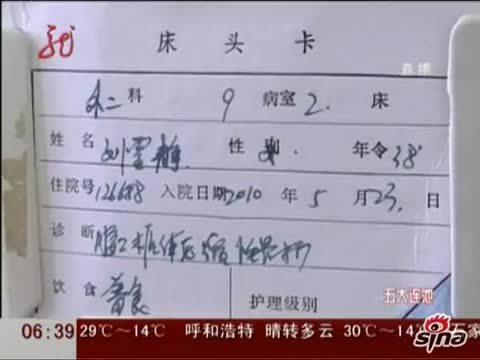 床头卡
直播
外二科 9 病室 2. 床
姓名 刘雪静 性别 年令 38
住院号 126688 入院日期 2010 年 5 月 23. 日
诊断 腰2
饮食 普食 护理级别
五大连池
06:39 29℃~14℃ 呼和浩特 晴转多云 30℃~14℃
sina